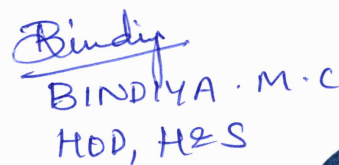 Bindiya
BINDIYA . M. C
HOD, H&S